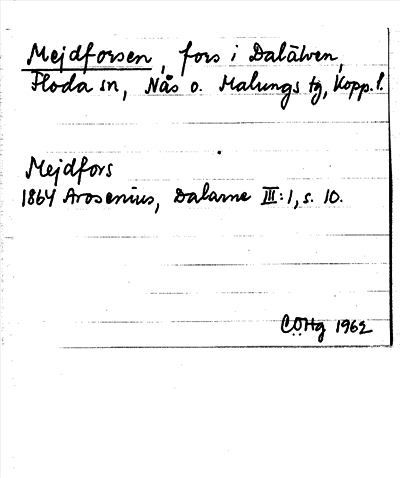 Mejdforsen, fors i Dalälven,
Floda sn, Nås o. Malungs tg, Kopp. l.
Mejdfors
1864 Arosenius, Dalarne III:1, s. 10.
CÖHg 1962